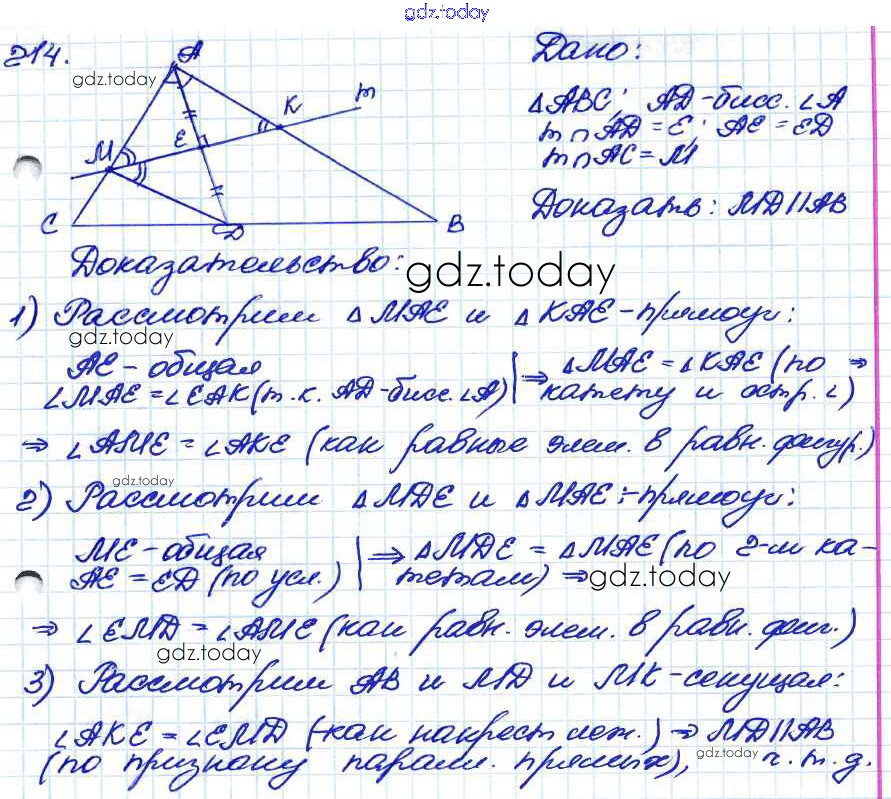 gdz.today
214.
A
gdz.today
K
m
E
M
C
D
B
Дано:
△ABC; AD-бисс. ∠A
m∩AD=E; AE=ED
m∩AC=M
Доказать: MD||AB
Доказательство:
gdz.today
1) Рассмотрим △MAE и △KAE-прямоуг:
gdz.today
AE-общая
∠MAE=∠EAK(т.к. AD-бисс.∠A) ⇒ △MAE=△KAE(по ⇒
катету и остр.∠)
⇒ ∠AME=∠AKE (как равные элем. в равн. фигур.)
gdz.today
2) Рассмотрим △MDE и △MAE-прямоуг:
ME-общая
AE=ED (по усл.) ⇒ △MDE=△MAE(по 2-м ка-
тетам) ⇒
gdz.today
⇒ ∠EMD=∠AME(как равн. элем. в равн. фиг.)
gdz.today
3) Рассмотрим AB и MD и MK-секущая:
∠AKE=∠EMD (-как накрест леж.) ⇒ MD||AB
(по признаку паралл. прямых), ч.т.д.
gdz.today